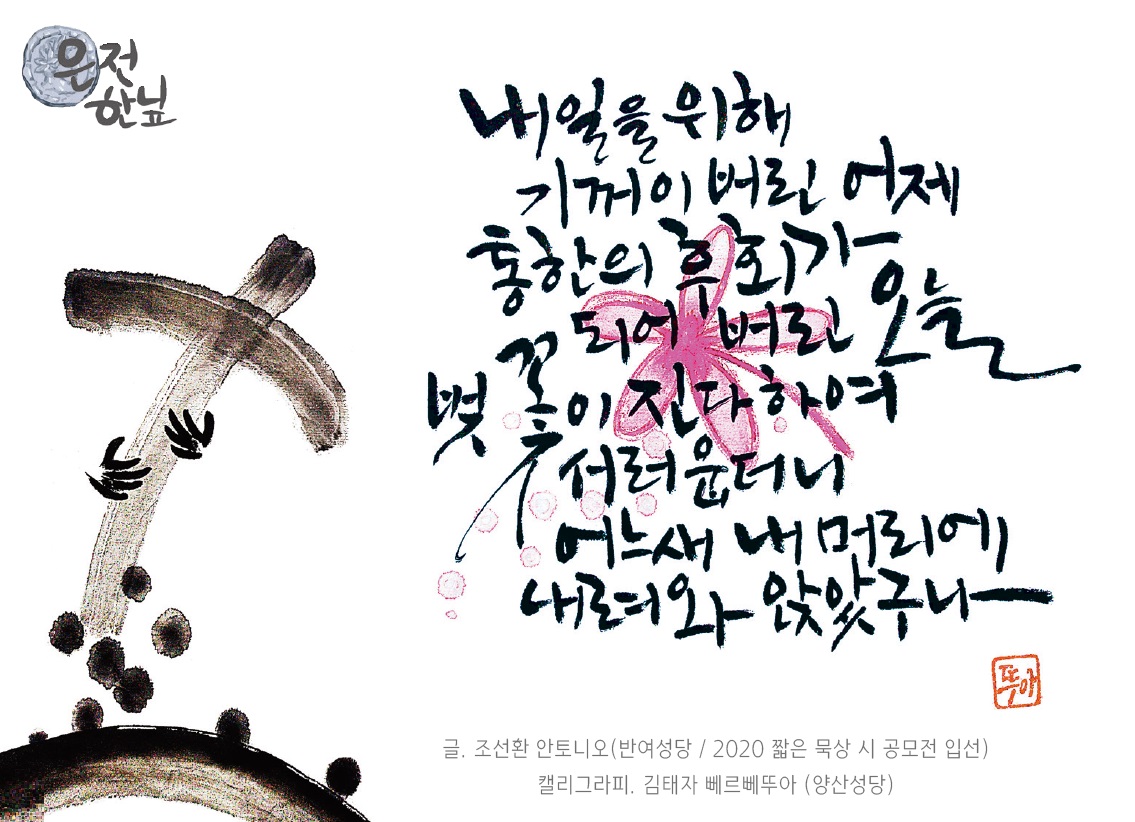 은전
한닢
내일을 위해
기꺼이 버린 어제
통한의 후회가
되어 버린 오늘
벚꽃이 진다하여
서러웁더니
어느새 내 머리에
내려와 앉았구나
뚜아
글. 조선환 안토니오(반여성당 / 2020 짧은 묵상 시 공모전 입선)
캘리그라피. 김태자 뻬르뻬뚜아 (양산성당)